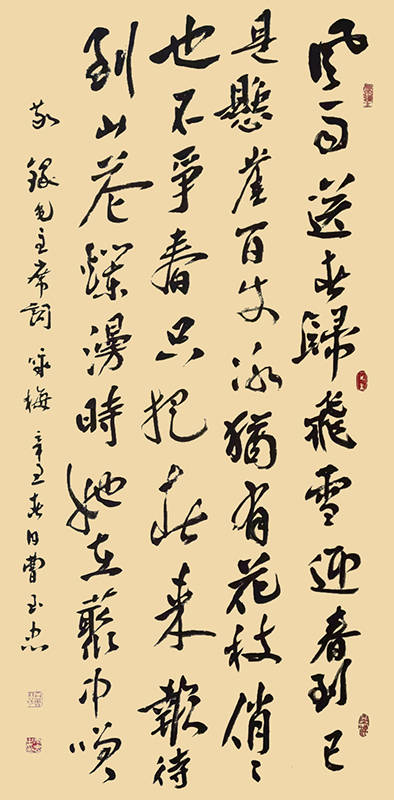 風雨送春歸飛雪迎春到已
是懸崖百丈冰猶有花枝俏々
也不爭春只把春來報待
到山花爛漫時她在叢中咲
敬錄毛主席詞咏梅辛丑春日曹玉忠